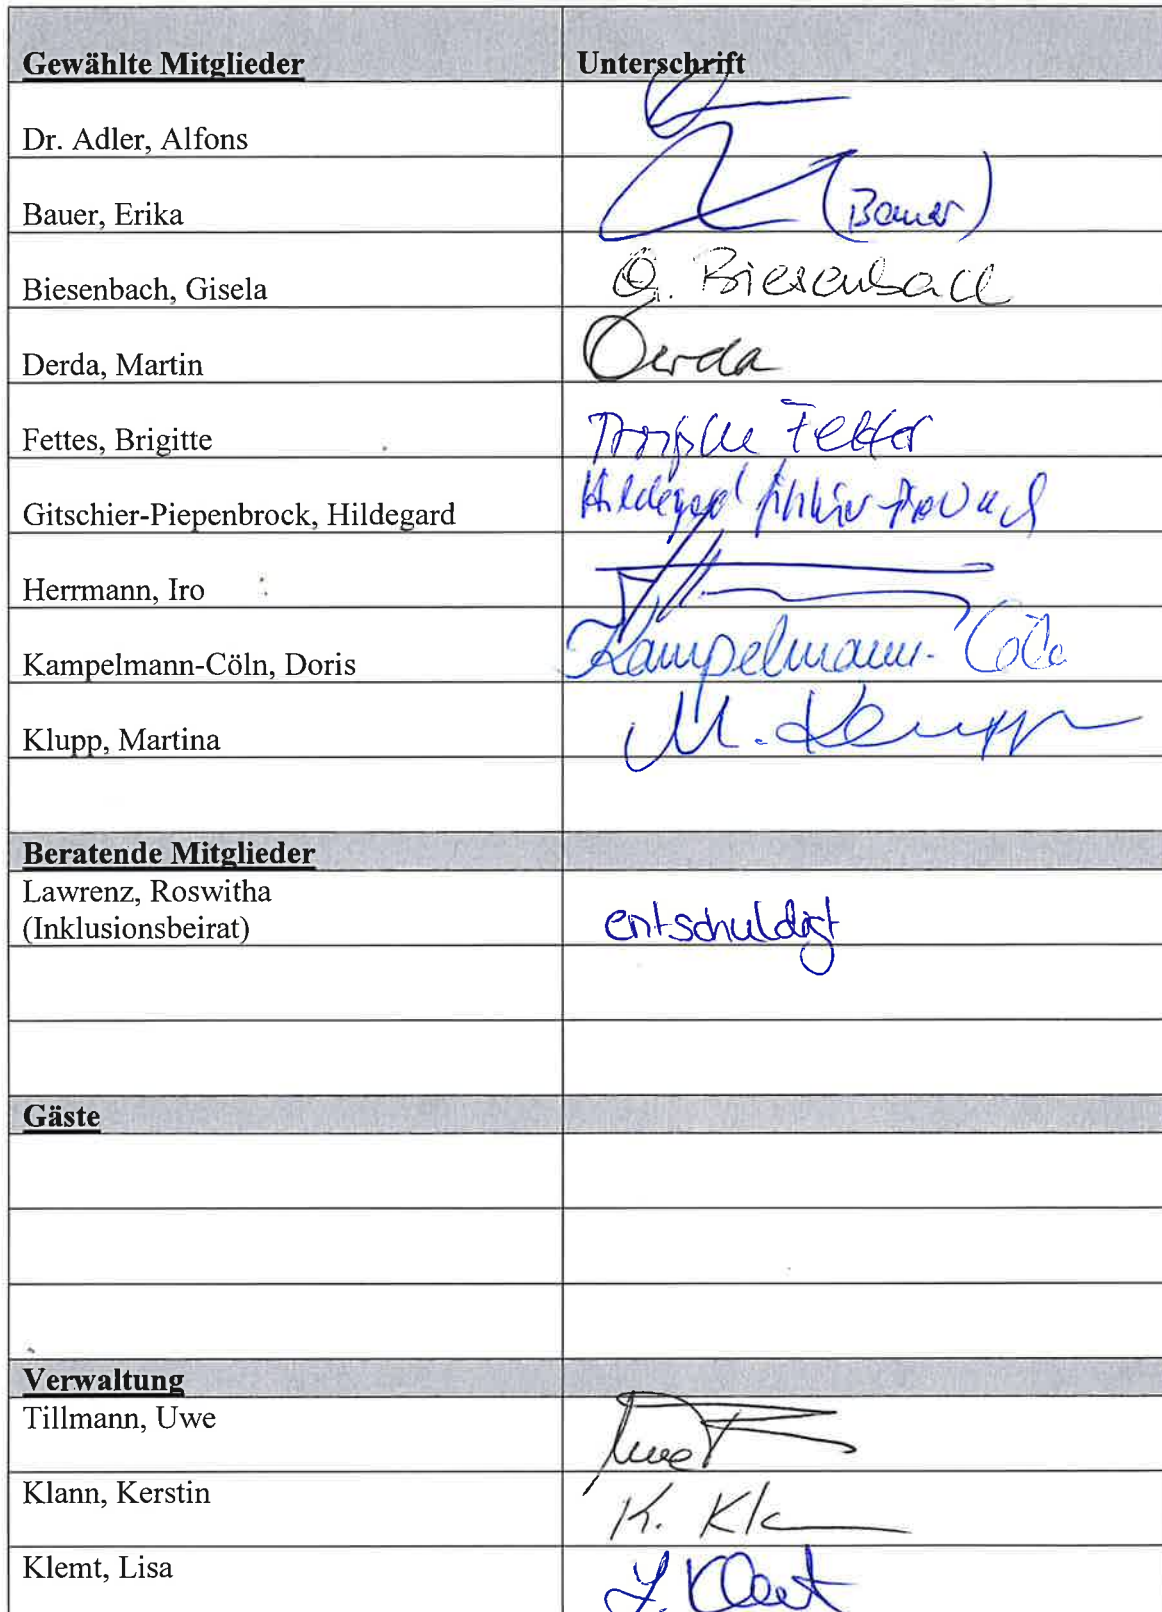 Gewählte Mitglieder Unterschrift
Dr. Adler, Alfons
Bauer, Erika (Bauer)
Biesenbach, Gisela G. Biesenbach
Derda, Martin Derda
Fettes, Brigitte
Gitschier-Piepenbrock, Hildegard Hildegard
Herrmann, Iro
Kampelmann-Cöln, Doris Kampelmann-Cöln
Klupp, Martina M. Klupp
Beratende Mitglieder
Lawrenz, Roswitha
(Inklusionsbeirat) entschuldigt
Gäste
Verwaltung
Tillmann, Uwe Uwe T
Klann, Kerstin K. Kla
Klemt, Lisa L. Klemt